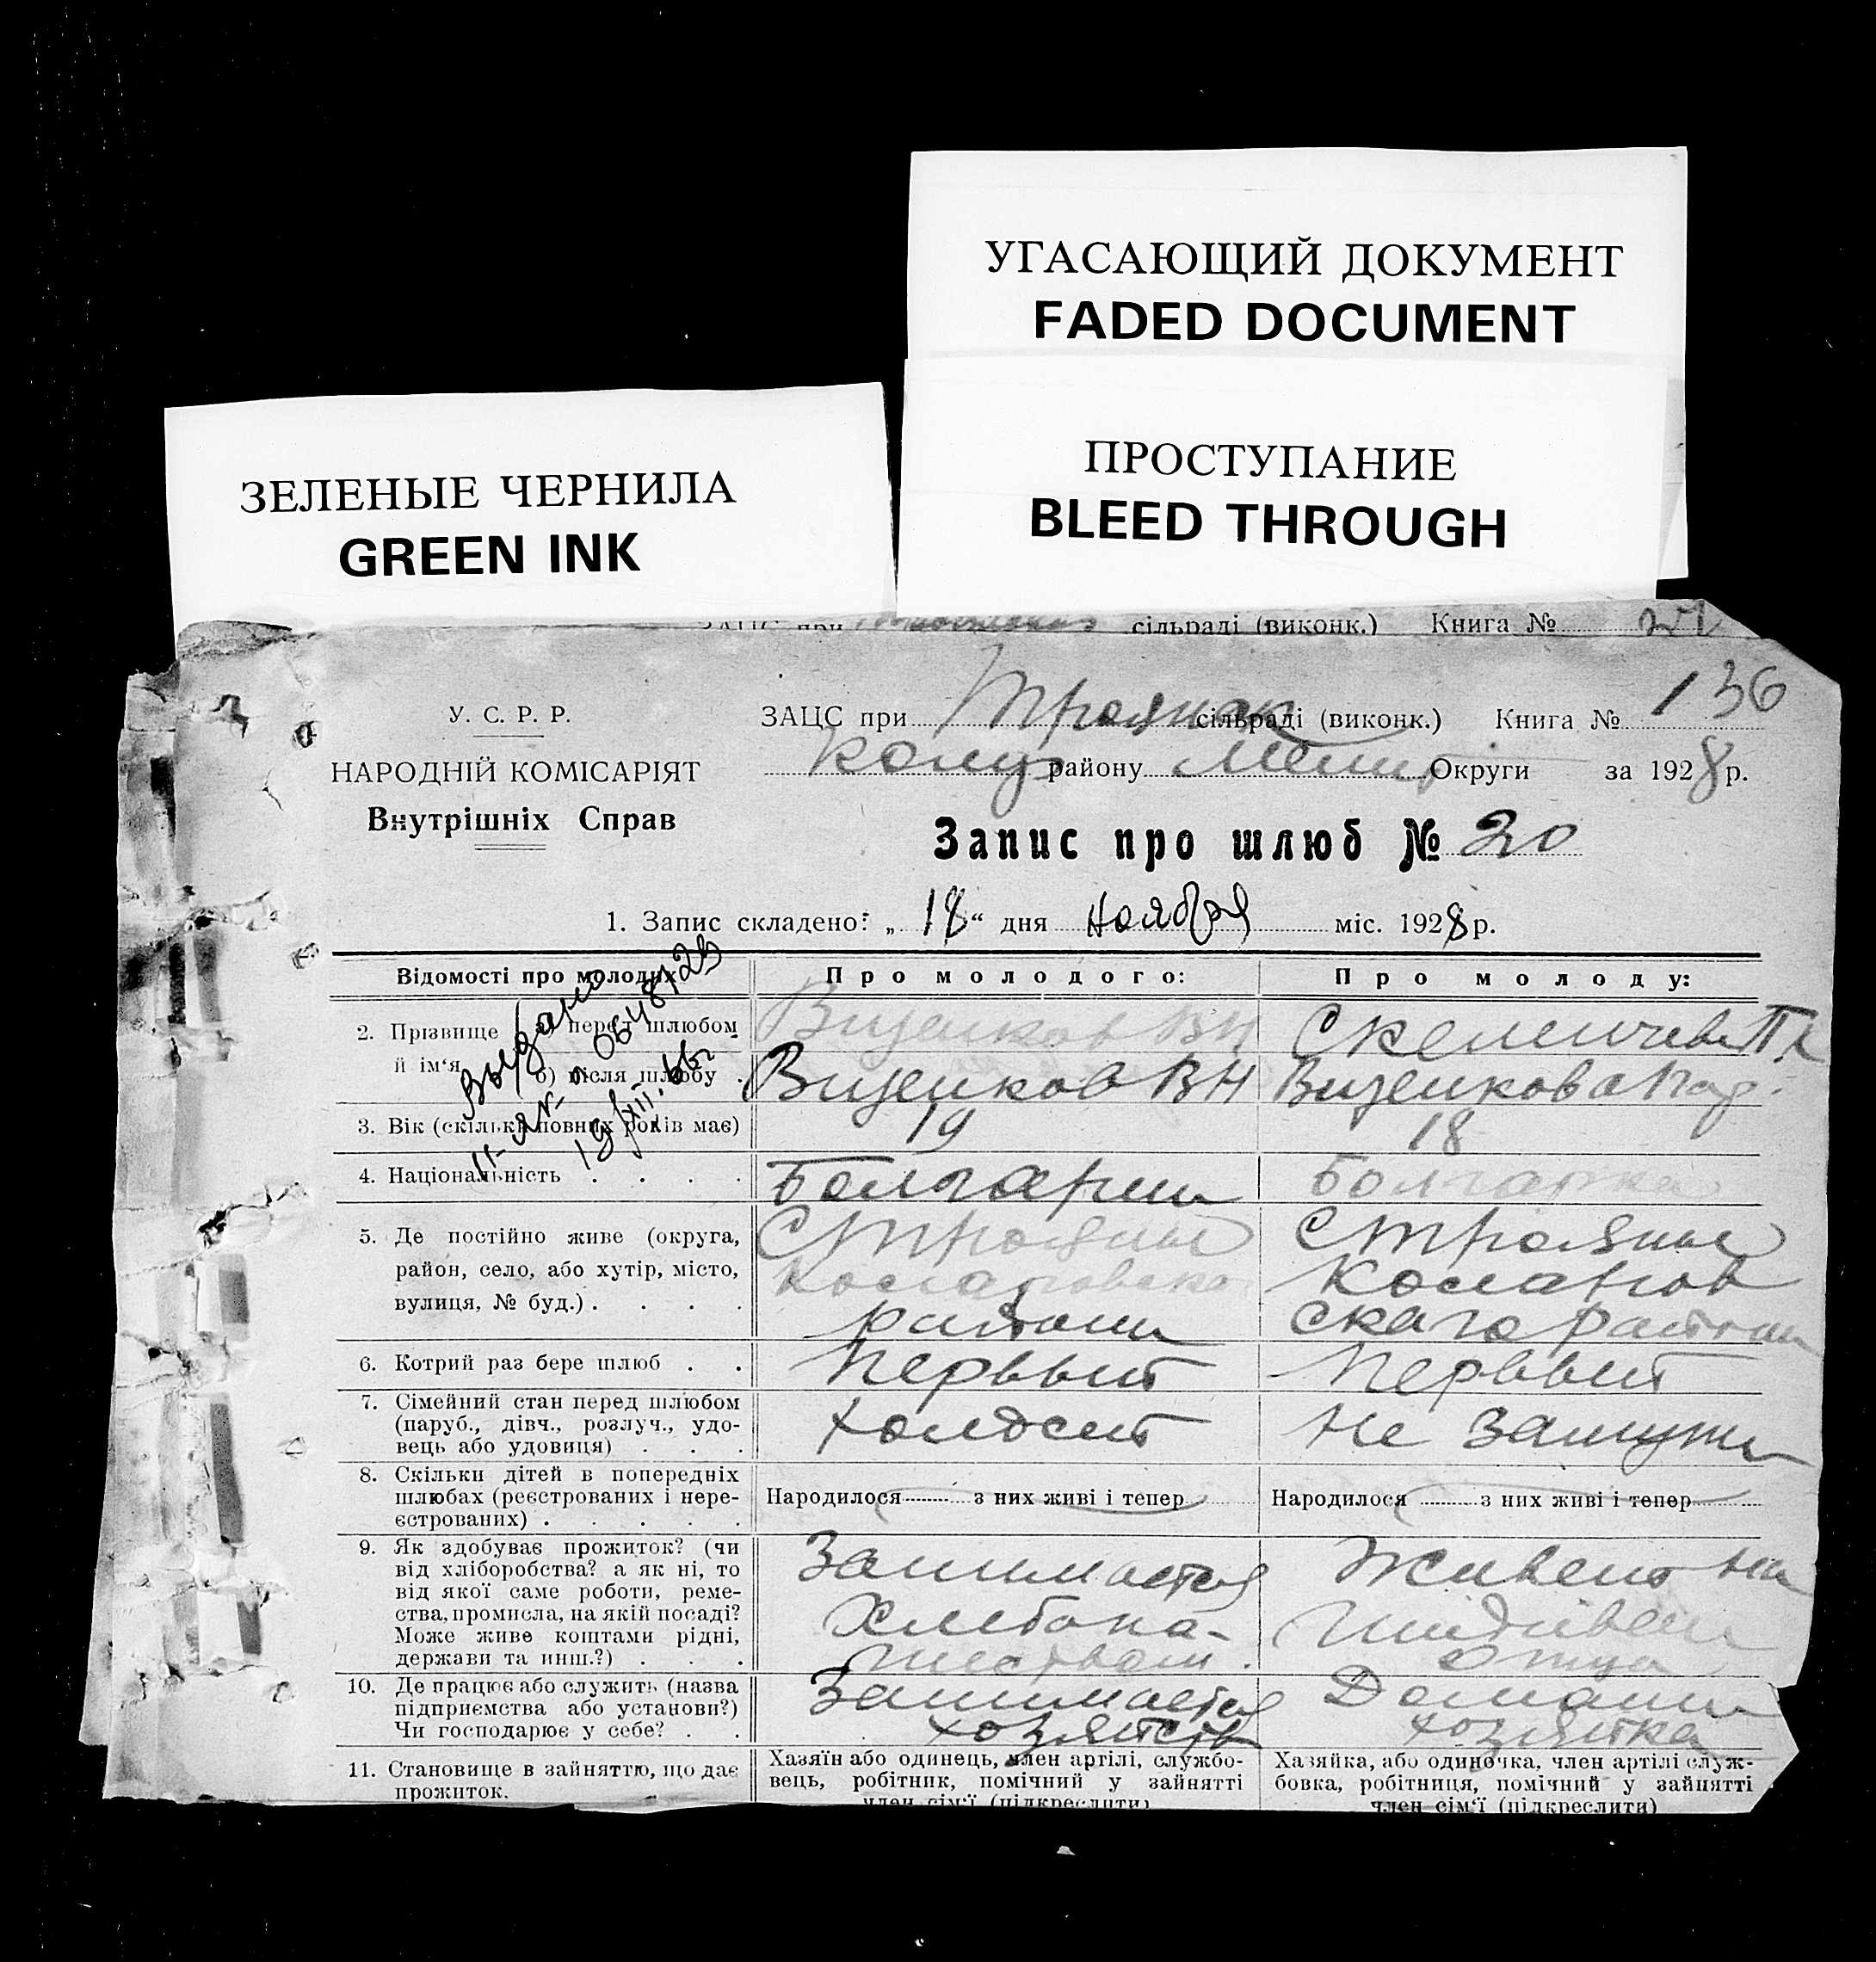 УГАСАЮЩИЙ ДОКУМЕНТ
FADED DOCUMENT
ПРОСТУПАНИЕ
BLEED THROUGH
ЗЕЛЕНЫЕ ЧЕРНИЛА
GREEN INK
ЗАЦС при сільраді (виконк.) Книга №
У. С. Р. Р.
НАРОДНІЙ КОМІСАРІЯТ
Внутрішніх Справ
ЗАЦС при Троянск сільраді (виконк.) Книга № 136
району Мелит Округи за 1928 р.
Запис про шлюб № 20
1. Запис складено: „18“ дня ноября міс. 1928 р.
Відомості про молодих Про молодого: Про молоду:
2. Прізвище й ім'я
перед шлюбом
б) після шлюбу .
Виденков ВН
Виденкова
3. Вік (скільки повних років має) 19 18
4. Національність . . . . Болгарин Болгарка
5. Де постійно живе (округа, район, село, або хутір, місто, вулиця, № буд.) . . . .
С Трояны
района
С Трояны
района
6. Котрий раз бере шлюб . . Первый Первый
7. Сімейний стан перед шлюбом (паруб., дівч., розлуч., удовець або удовиця) . . .
холостий не замужн
8. Скільки дітей в попередніх шлюбах (реєстрованих і нереєстрованих) . . . . .
Народилося з них живі і тепер Народилося з них живі і тепер
9. Як здобуває прожиток? (чи від хліборобства? а як ні, то від якої саме роботи, ремества, промисла, на якій посаді? Може живе коштами рідні, держави та инш.?) . . .
Занимается
Хлебопа-
шеством.
Живет на
отца
10. Де працює або служить (назва підприємства або установи?) Чи господарює у себе? . .
Занимается
хозяйств
Домашн
хозяйка
11. Становище в зайняттю, що дає прожиток.
Хазяїн або одинець, член артілі, службовець, робітник, помічний у зайнятті член сім'ї (підкреслити)
Хазяйка, або одиночка, член артілі службовка, робітниця, помічний у зайнятті член сім'ї (підкреслити)
Выдано
19/XII.66г.